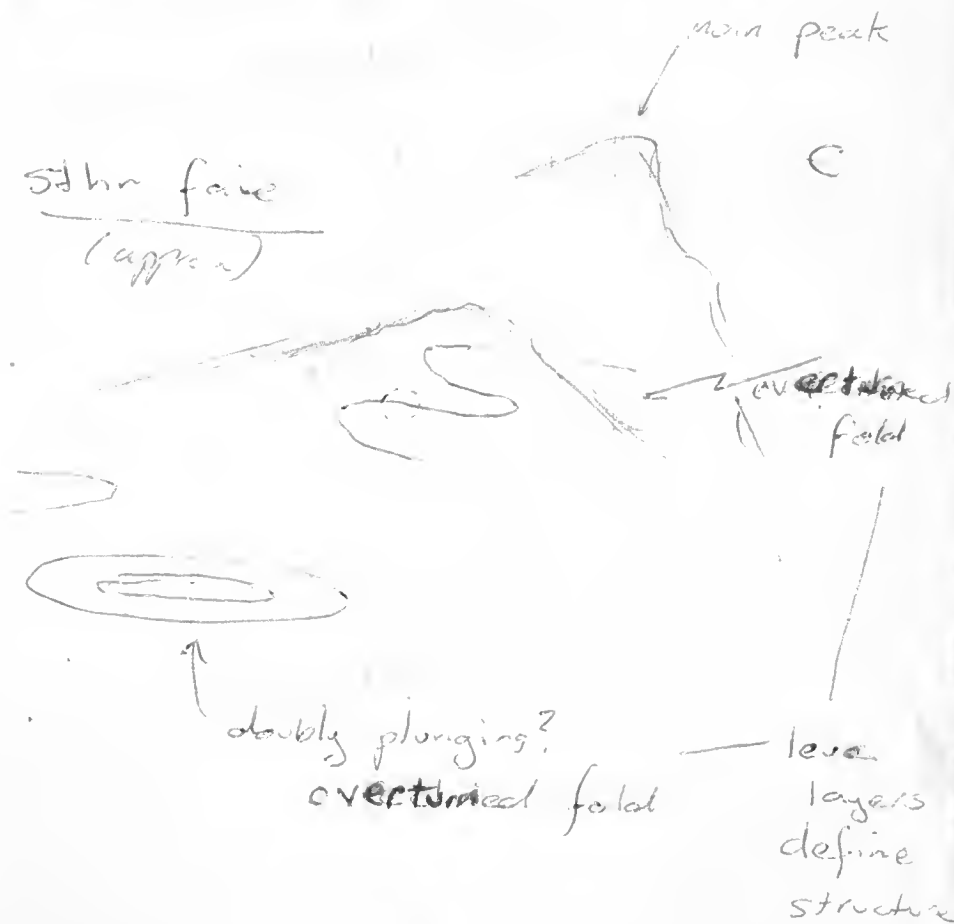 main peak
C
Sthn face
(approx)
overturned
fold
doubly plunging?
overturned fold
leuco
layers
define
structure